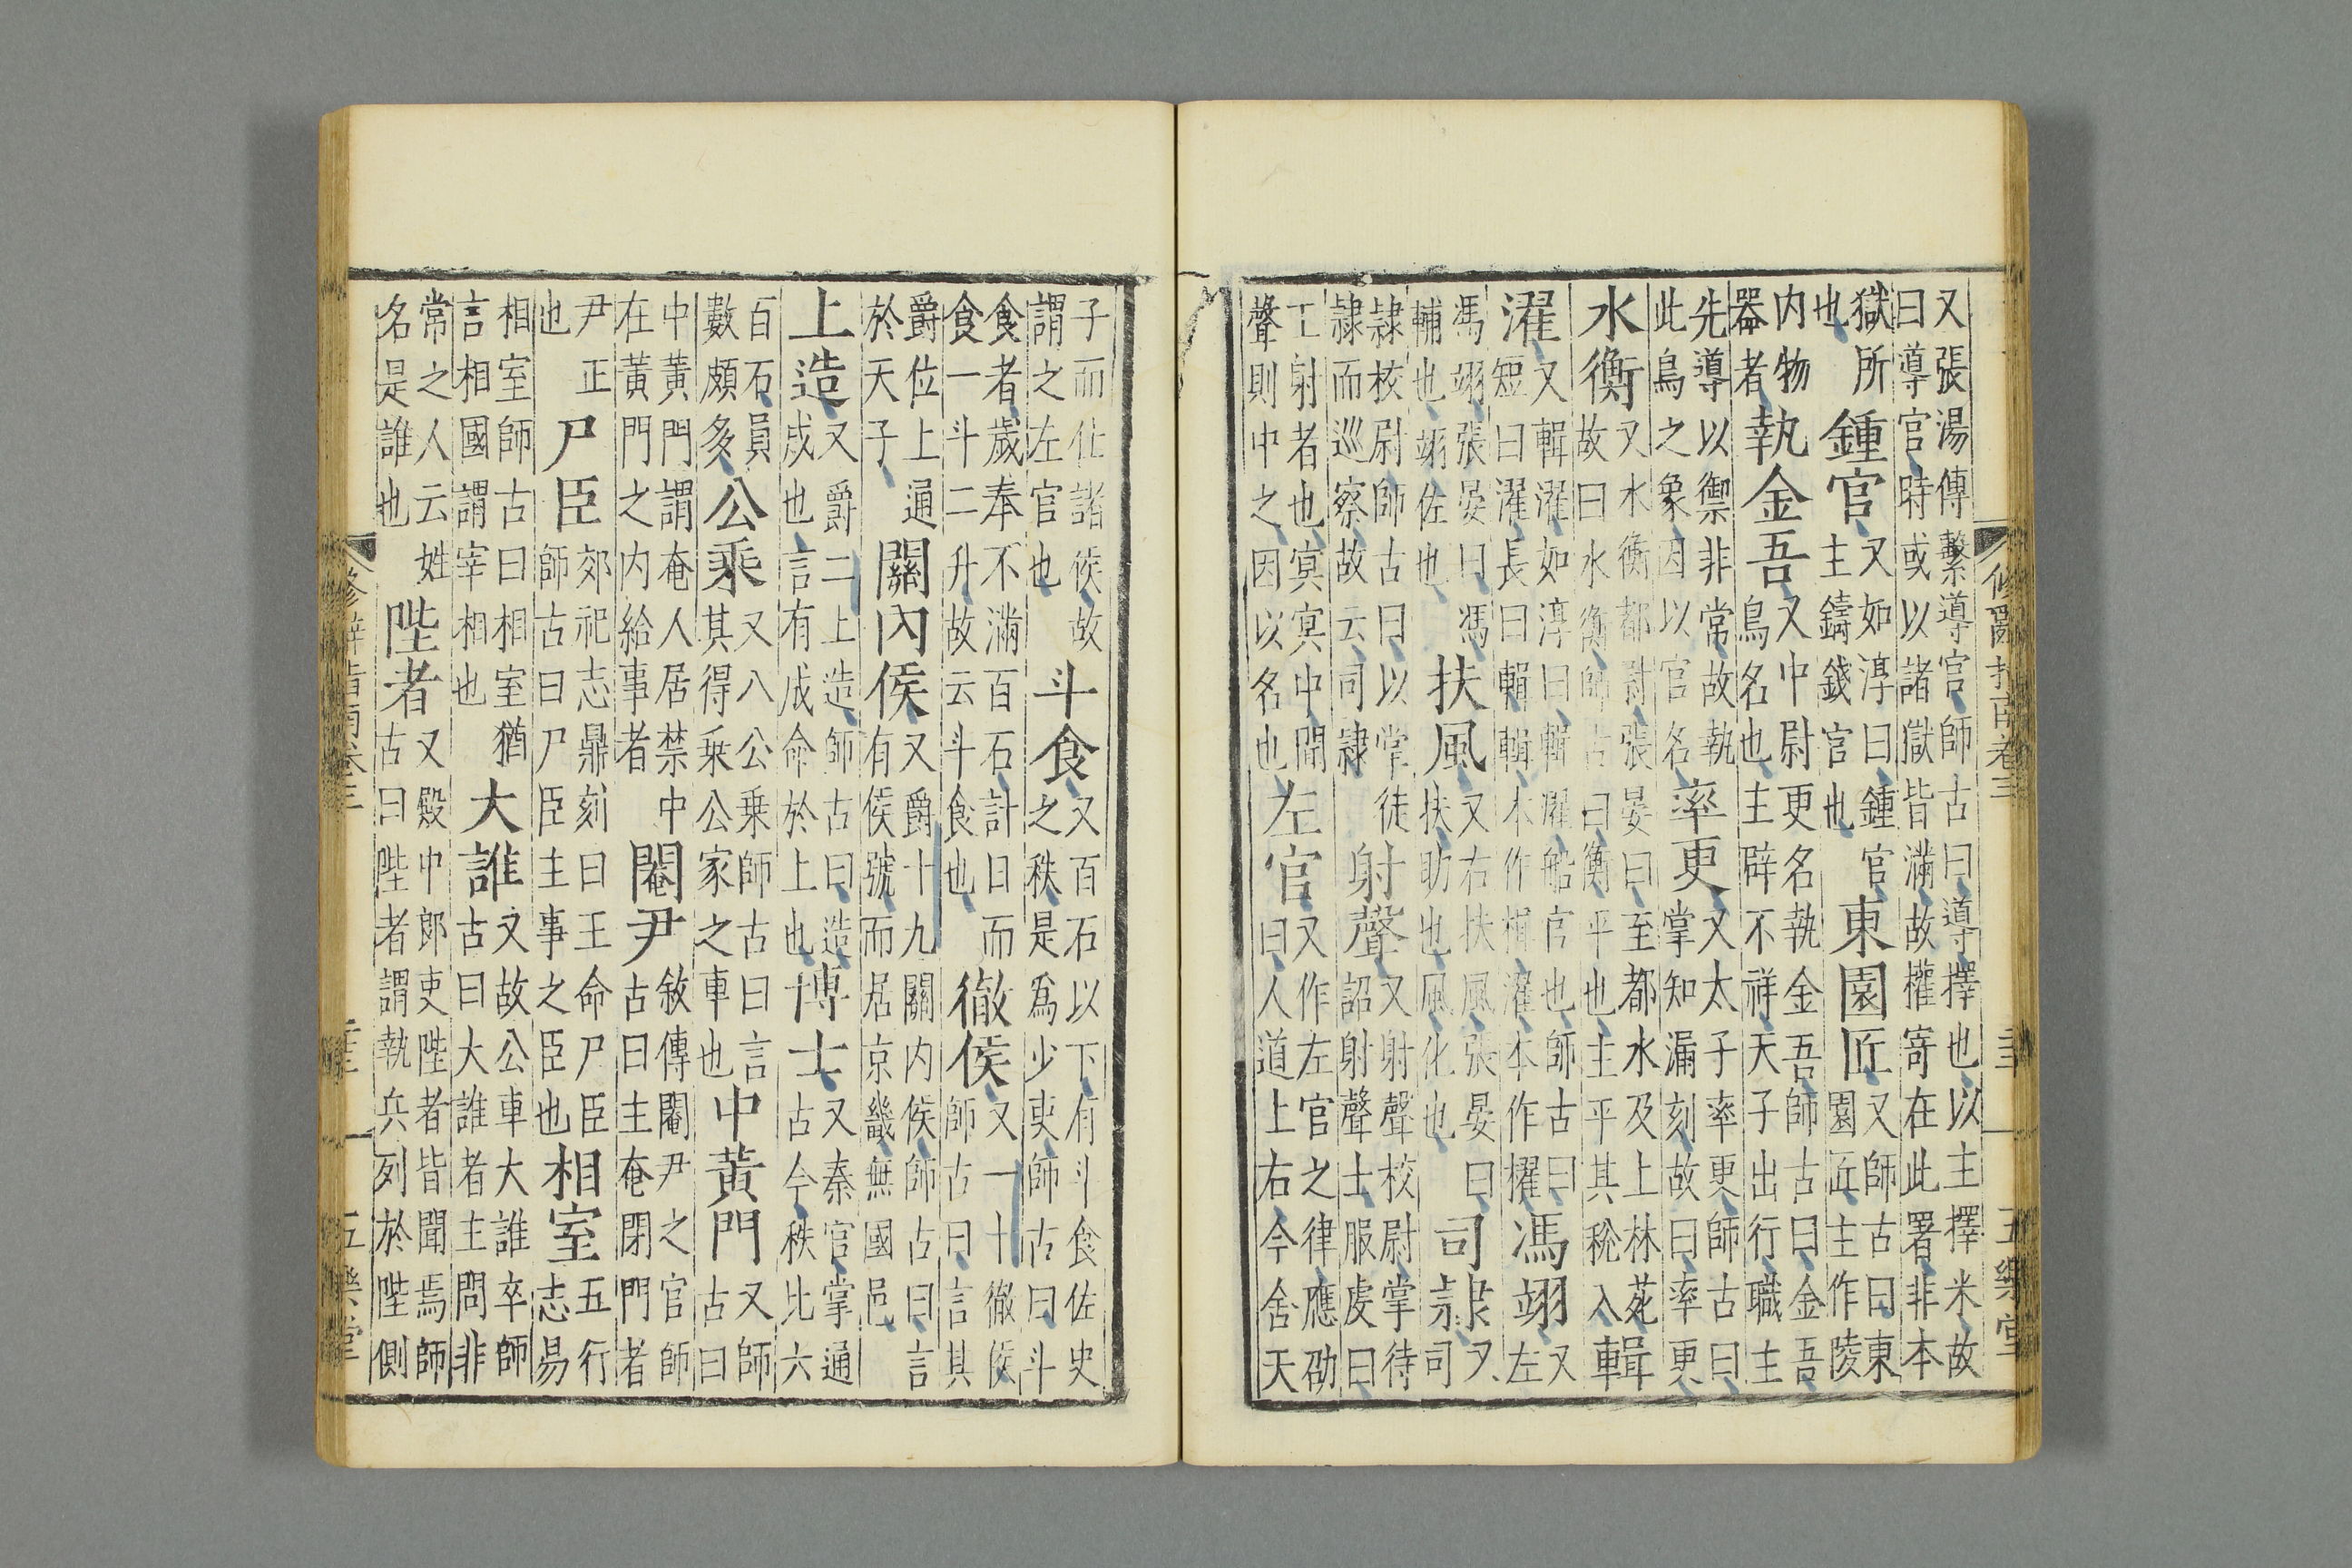 又張湯傳繫導官師古曰導擇也以主擇米故
曰導官時或以諸獄皆滿故權寄在此署非本
獄所
也
鍾官
又如淳曰鍾官
主鑄錢官也
東園匠
又師古曰東
園匠主作陵
内物
器者
執金吾
又中尉更名執金吾師古曰金吾
鳥名也主辟不祥天子出行職主
先導以禦非常故執
此鳥之象因以官名
率更
又太子率更師古曰
掌知漏刻故曰率更
水衡
又水衡都尉張晏曰至都水及上林苑
故曰水衡師古曰衡平也主平其稅入
輯
濯
又輯濯如淳曰輯濯船官也師古曰
短曰濯長曰輯輯本作楫濯本作櫂
馮翊
又
左
馮翊張晏曰馮
輔也翊佐也
扶風
又右扶風張晏曰
扶助也風化也
司隷
又
司
隷校尉師古曰以掌徒
隷而巡察故云司隷
射聲
又射聲校尉掌待
詔射聲士服虔曰
工射者也冥冥中聞
聲則中之因以名也
左官
又作左官之律應劭
曰人道上右今舍天
修辭指南卷三
五樂堂
子而仕諸侯故
謂之左官也
斗食
又百石以下有斗食佐史
之秩是為少吏師古曰斗
食者歲奉不滿百石計日而
食一斗二升故云斗食也
徹侯
又二十徹侯
師古曰言其
爵位上通
於天子
關內侯
又爵十九關内侯師古曰言
有侯號而居京畿無國邑
上造
又爵二上造師古曰造
成也言有成命於上也
博士
又秦官掌通
古今秩比六
百石員
數頗多
公乘
又八公乗師古曰言
其得乗公家之車也
中黃門
又師
古曰
中黃門謂奄人居禁中
在黃門之内給事者
閹尹
敘傳閹尹之官師
古曰主奄閉門者
尹正
也
尸臣
郊祀志鼎刻曰王命尸臣
師古曰尸臣主事之臣也
相室
五行
志易
相室師古曰相室猶
言相國謂宰相也
大誰
又故公車大誰卒師
古曰大誰者主問非
常之人云姓
名是誰也
陛者
又殿中郎吏陛者皆聞焉師
古曰陛者謂執兵列於陛側
修辭指南卷三
五樂堂